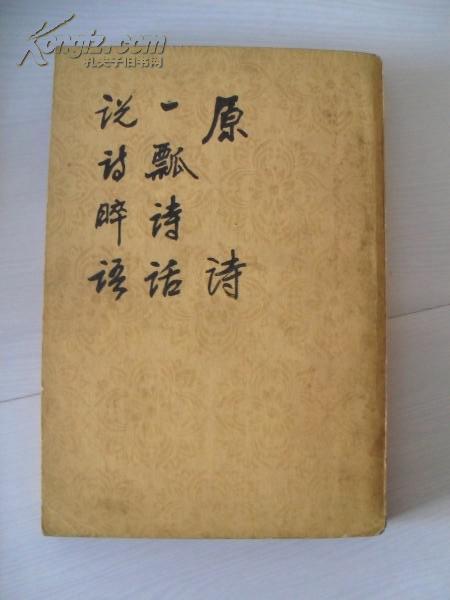 原诗
一瓢诗话
说诗晬语
Kongfz.com
孔夫子旧书网